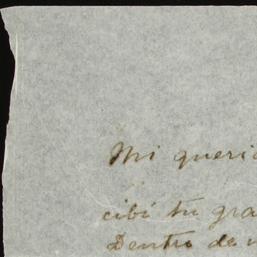 Mi queri
cibí tu gra
Dentro de